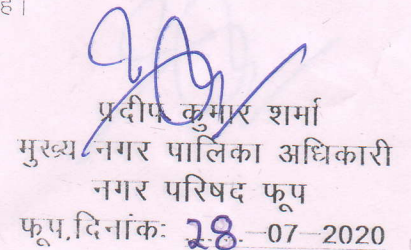 है।
प्रदीप कुमार शर्मा
मुख्य नगर पालिका अधिकारी
नगर परिषद फूप
फूप,दिनांकः 28 -07-2020